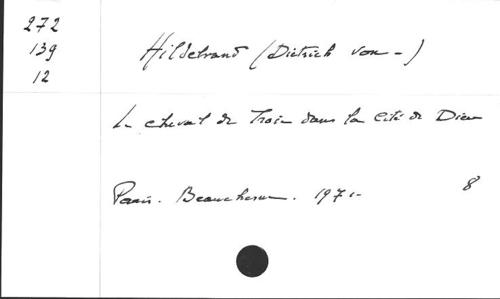 272
139
12
Hildebrand (Dietrich von -)
Le cheval de Troie dans la Cité de Dieu
Paris. Beauchesne. 197
8